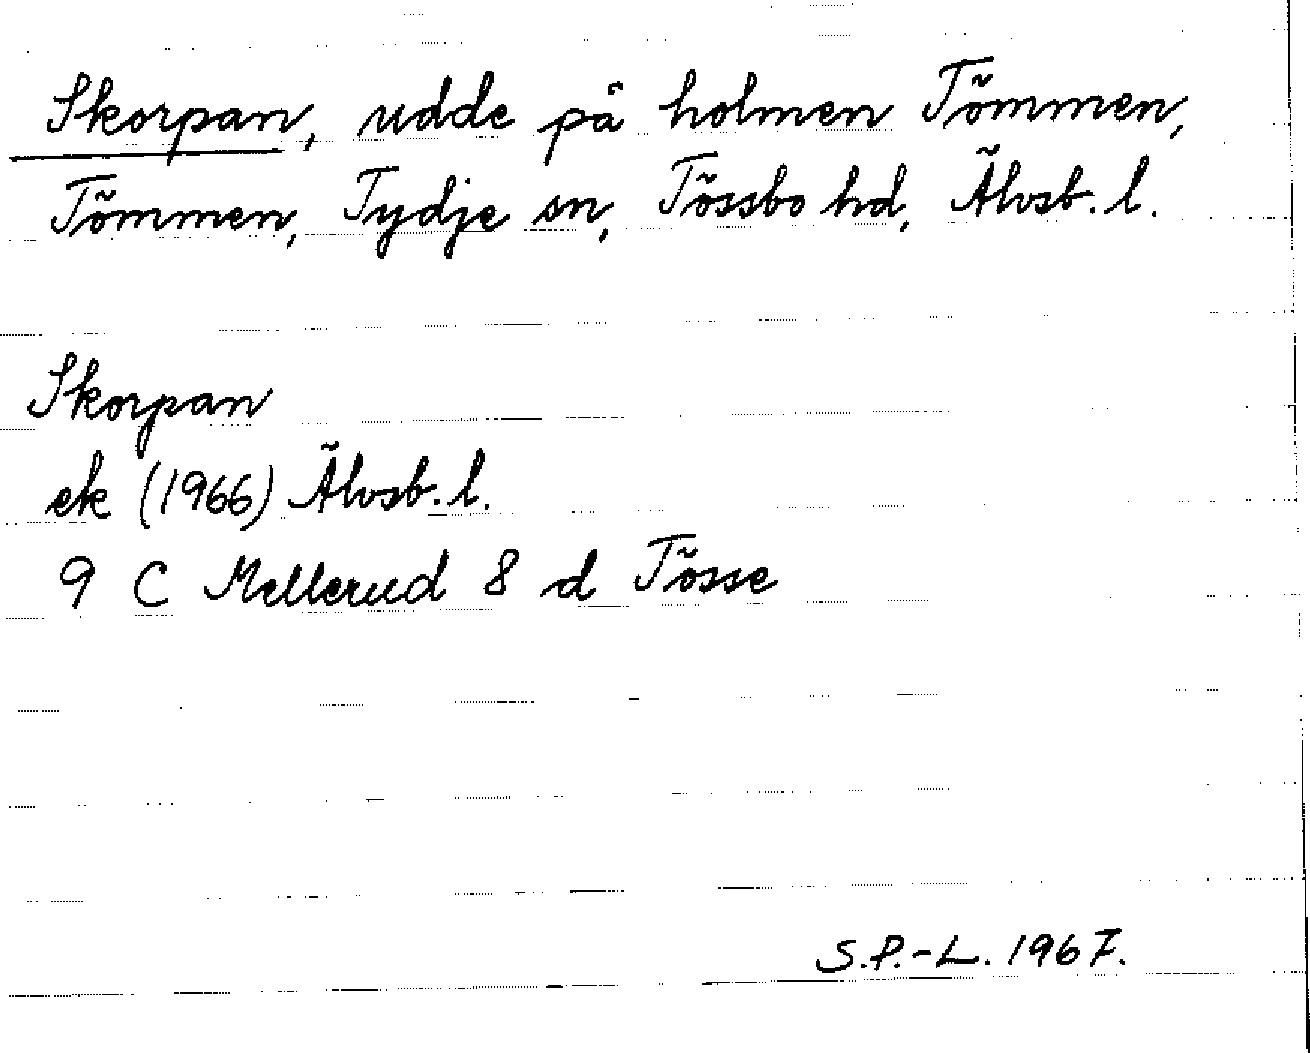 Skorpan, udde på holmen Tömmen,
Tömmen, Tydje sn, Tössbo hd, Älvsb. l.
Skorpan
ek (1966) Älvsb. l.
9 C Mellerud 8 d Tösse
S.P.-L. 1967.